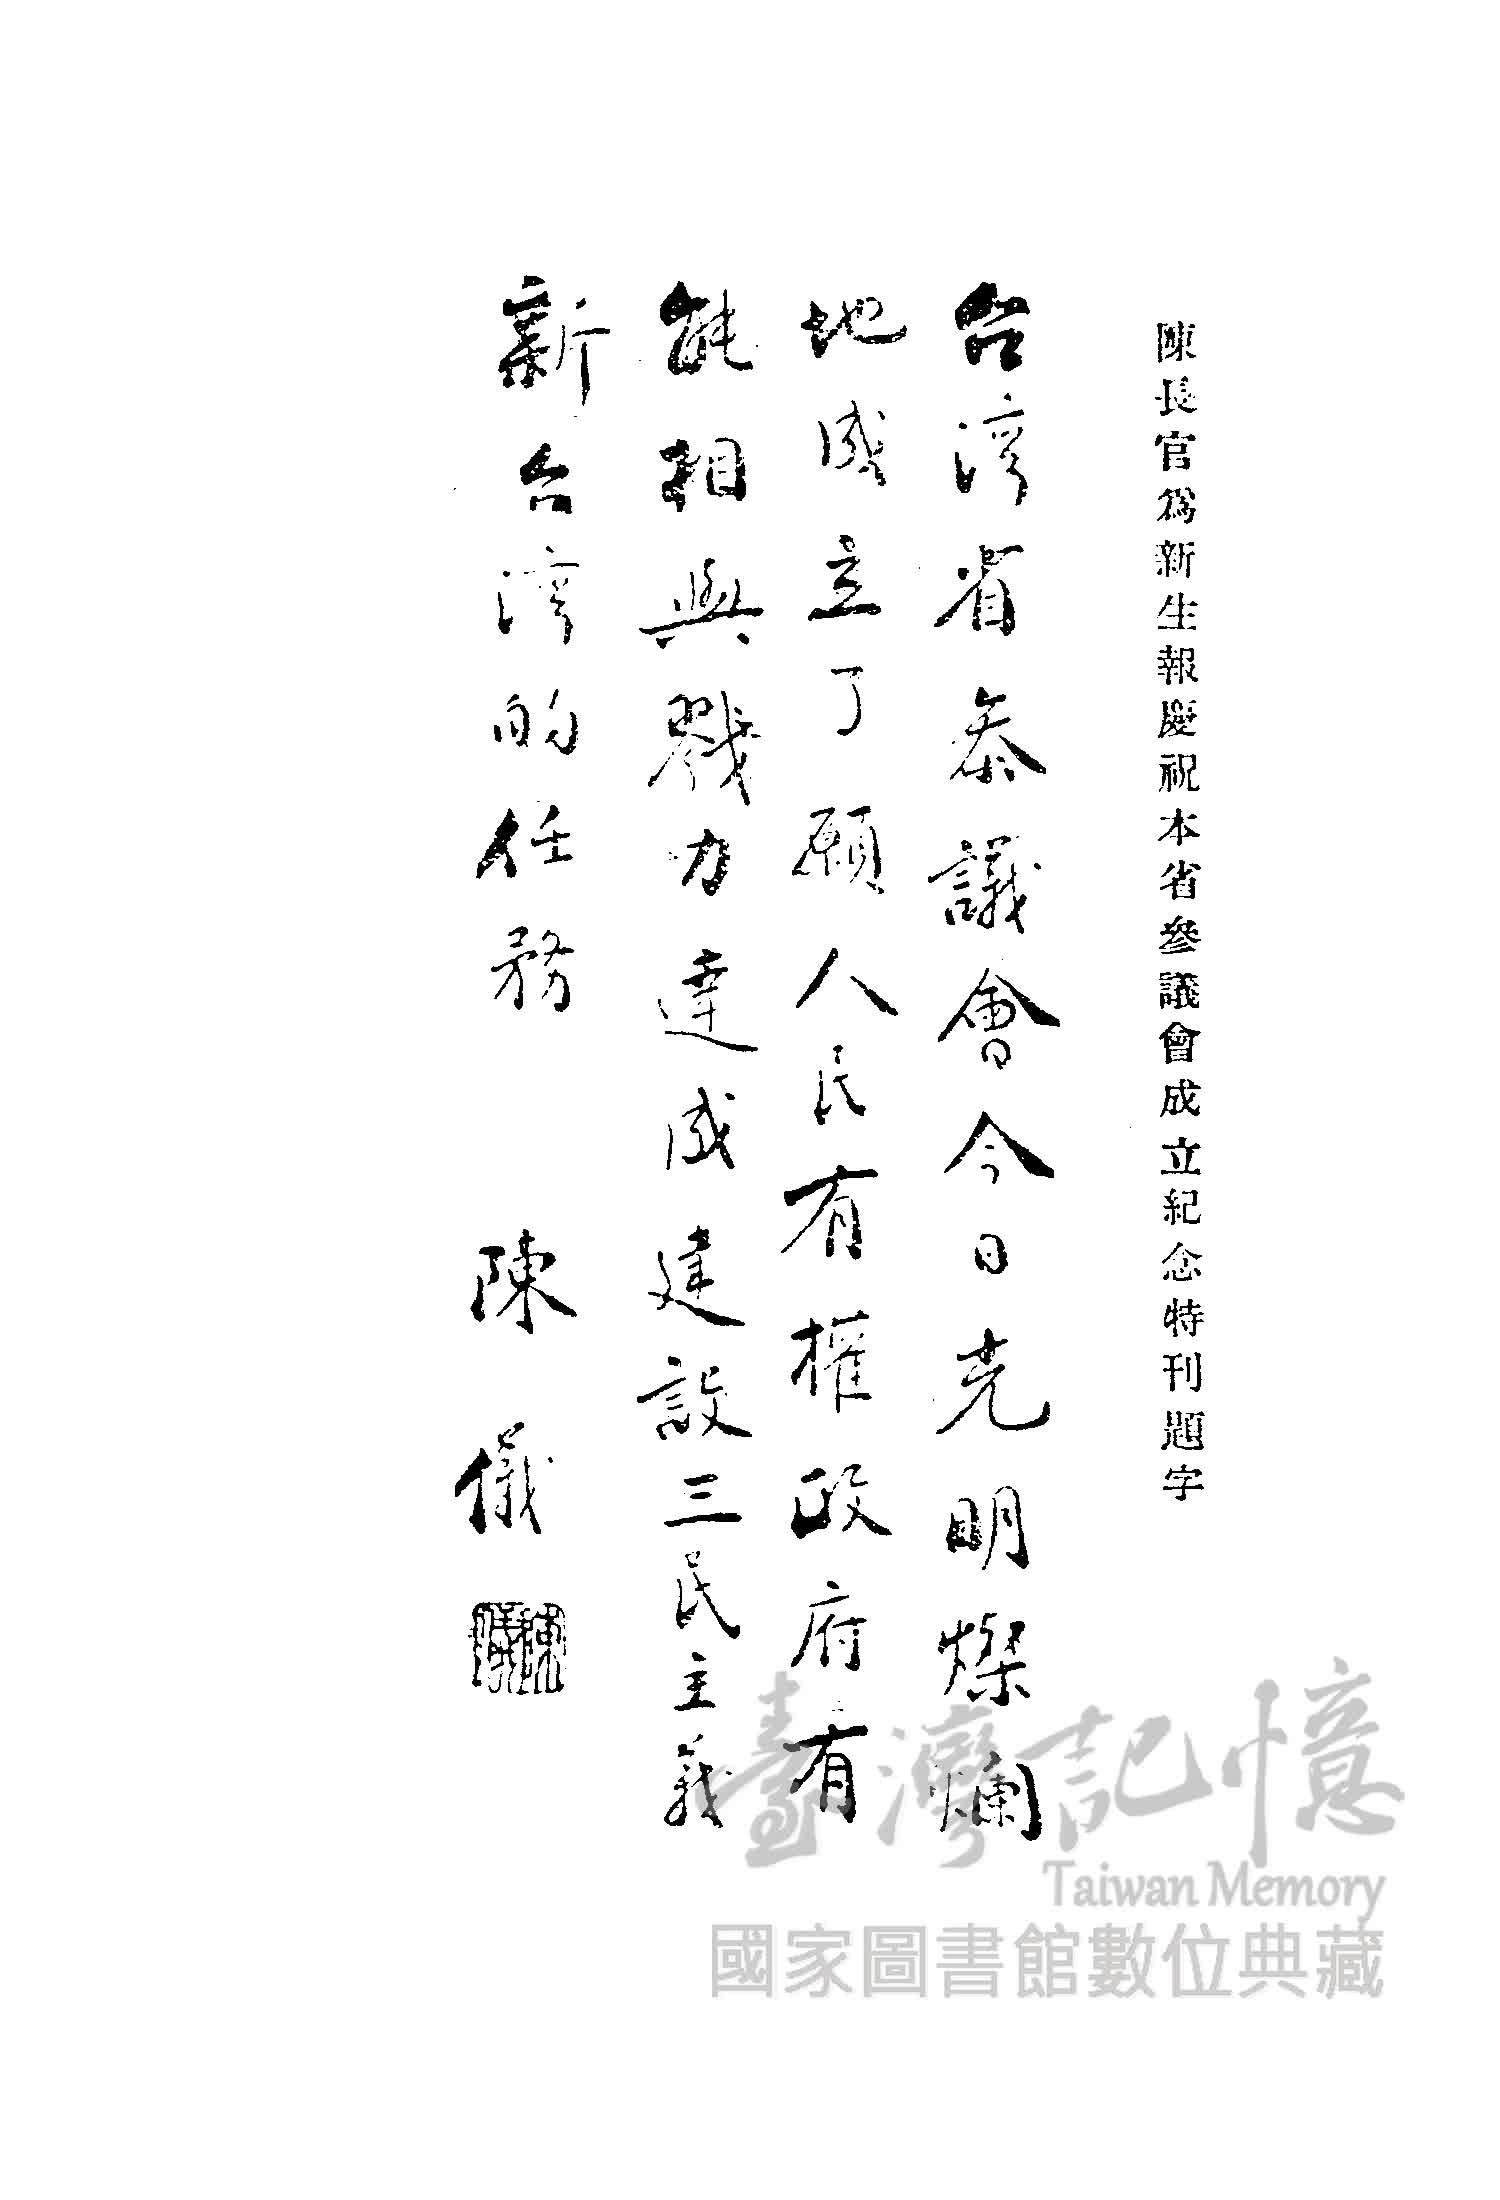 陳長官爲新生報慶祝本省參議會成立紀念特刊題字
台湾省参議會今日光明燦爛
地成立了願人民有權政府有
能相與戮力達成建設三民主義
新台湾的任务
陳儀
陳儀
臺灣記憶
Taiwan Memory
國家圖書館數位典藏